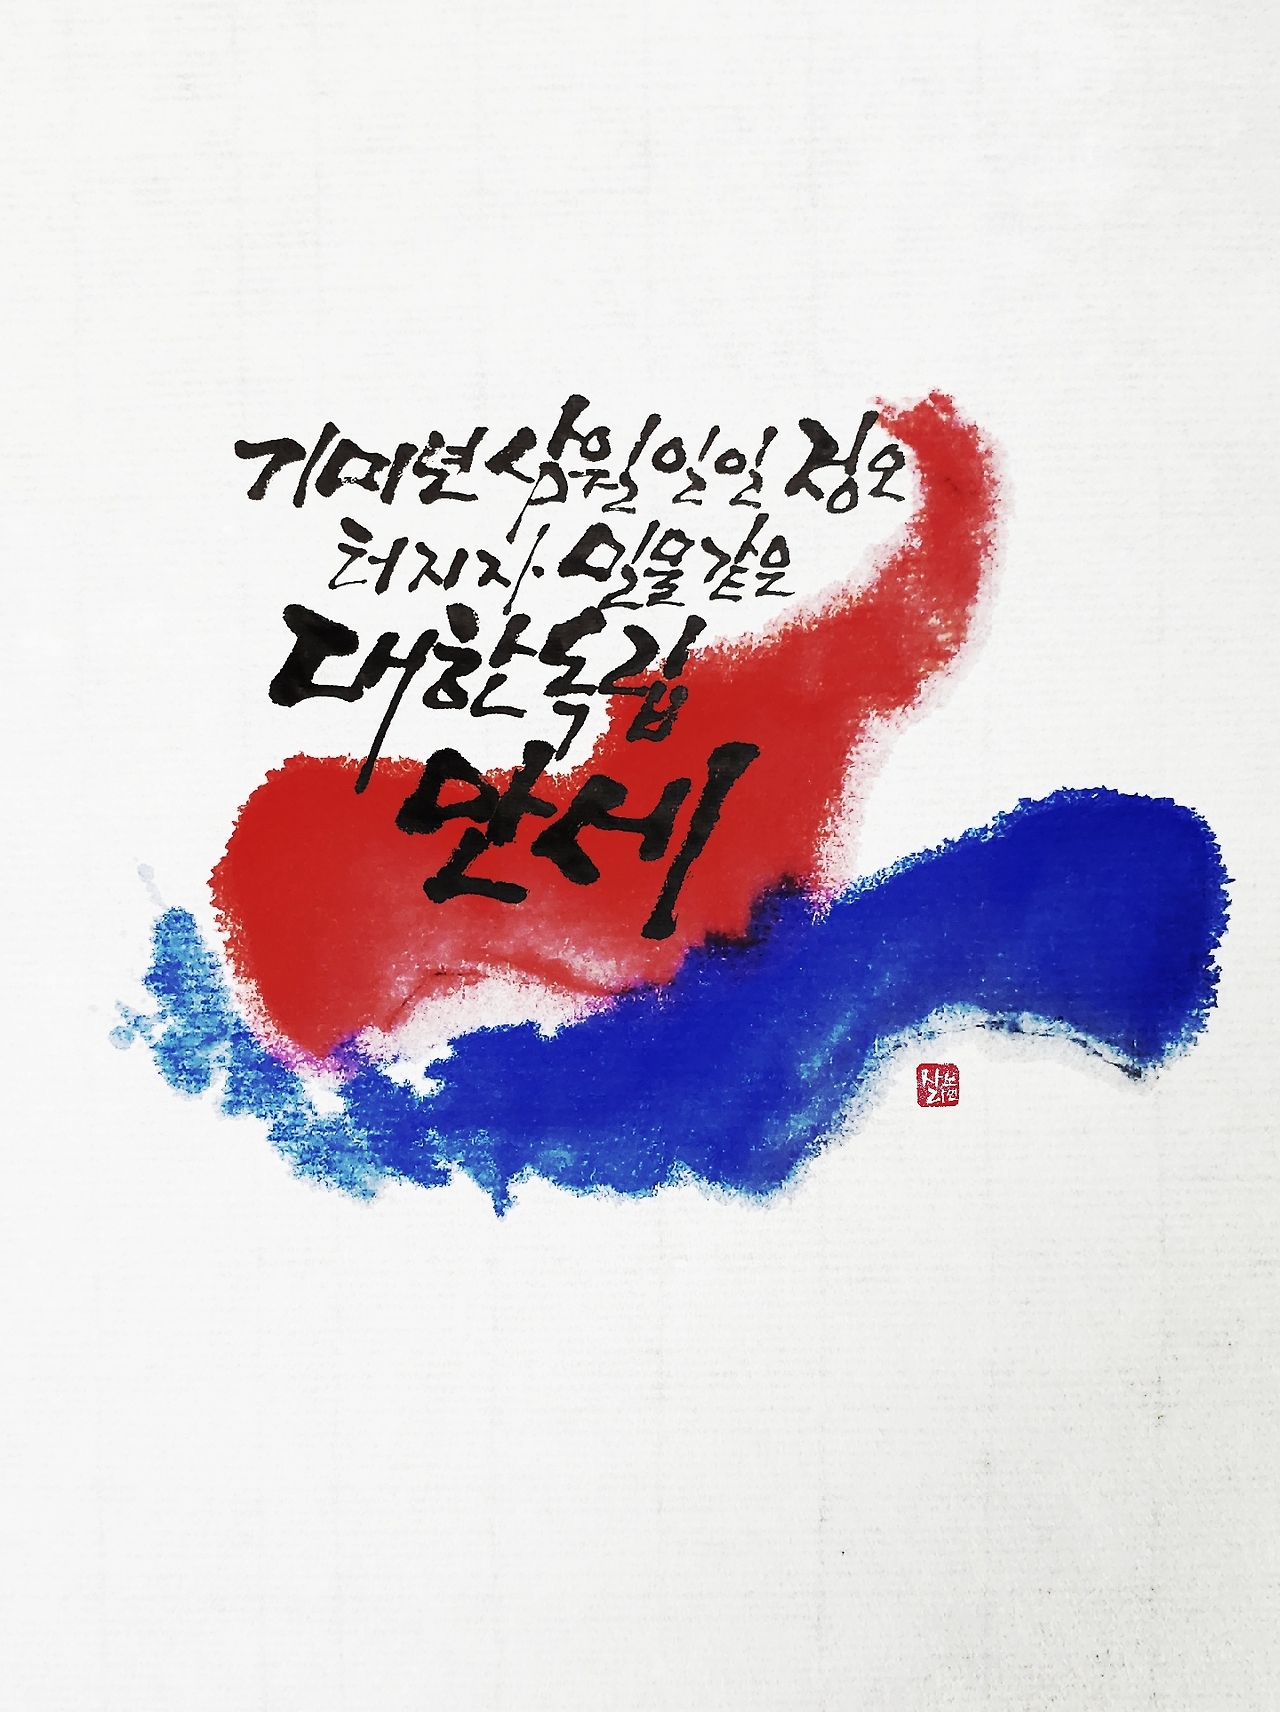 기미년 삼월일일 정오
터지자 밀물같은
대한독립
만세